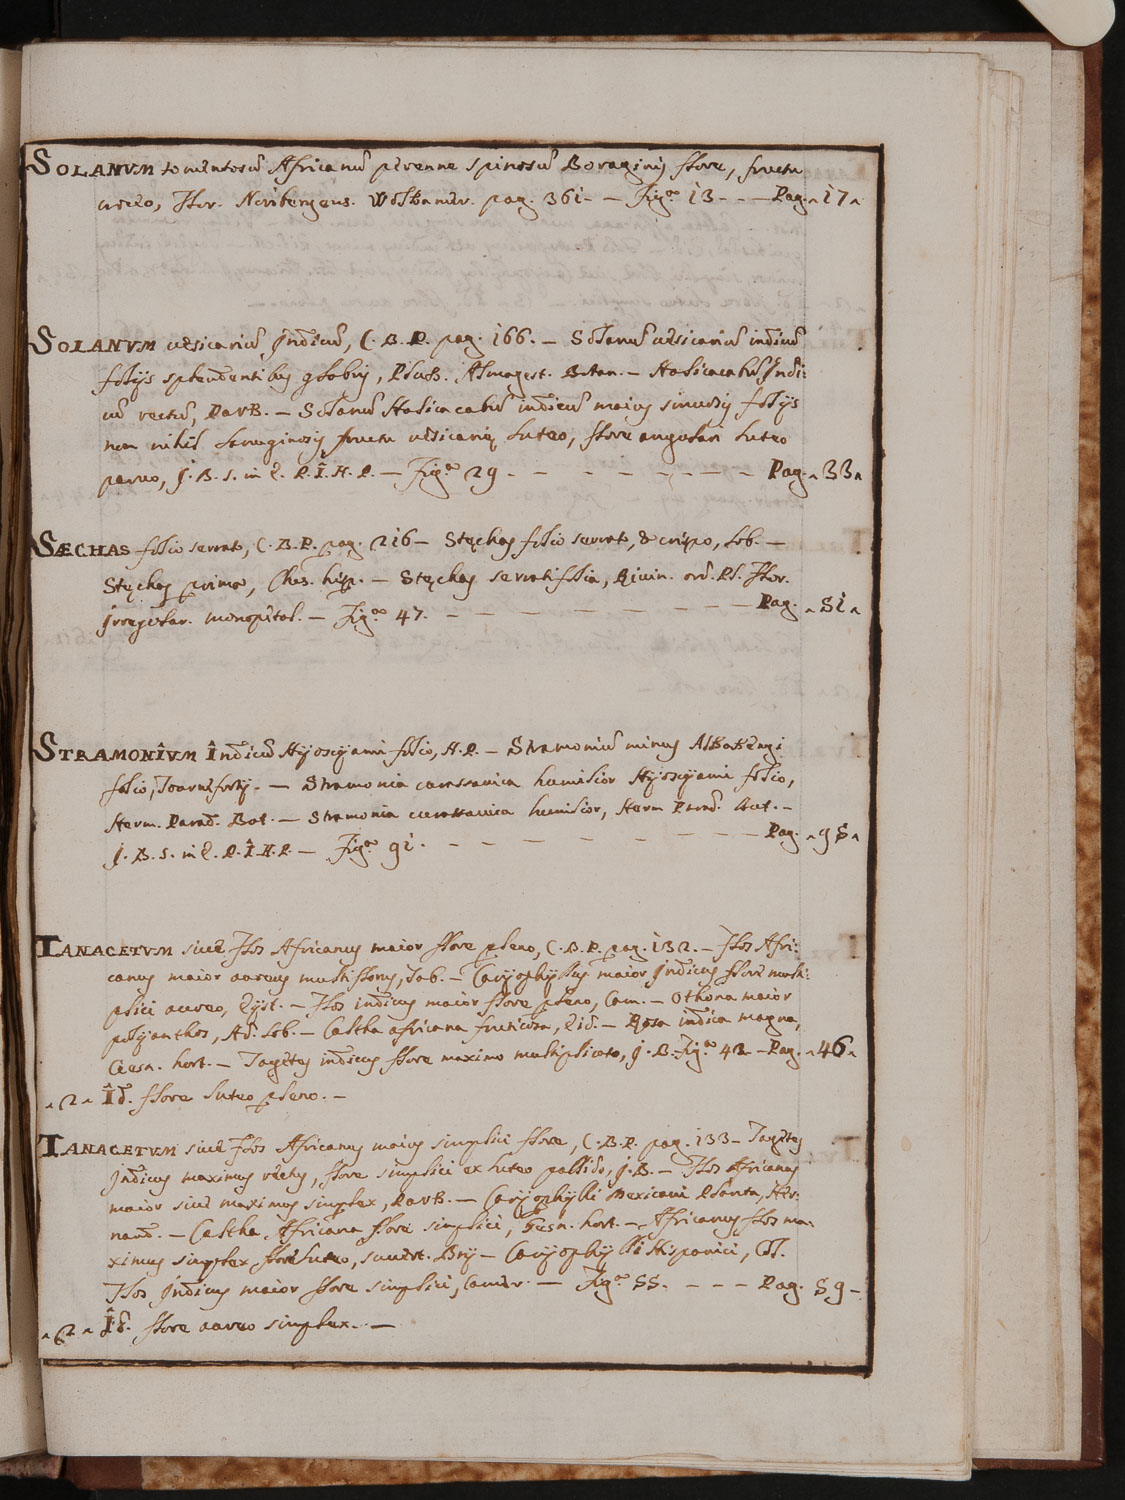 SOLANVM tomentosũ Africanũ perenne spinosũ Boraginis flore, fructu
croceo, Hor. Nuribergens. Wolkamer. pag. 361 - - Fig.ᵃ 13 - - - Pag. ^17^
SOLANVM vesicariũ Indicũ, C. B. P. pag. 166. - Solanũ vesicariũ indicũ
folijs splendentibus glabris, Pluk. Almagest. Botan. - Halicacabũ Indi:
cũ rectũ, ParK. - Solanũ Halicacabũ indicũ maius sinuosis folijs
non nihil lanuginosis fructu vesicarię luteo, flore angulari luteo
parvo, J. B. S. in L. P. Î. H. P. - Fig.ᵃ 29 - - - - - - - - Pag. ^33^
SÆCHAS folio serrato, C. B. P. pag. 216 - Stęchas folio serrato, & crispo, Lob. -
Stęchas prima, Clus. hisp. - Stęchas serratifolia, Rivin. ord. Pl. Flor.
Irregular. monopetal. - Fig.ᵃ 47. - - - - - - - - Pag. ^51^
STRAMONÎVM Îndicũ Hyoscyami folio, H. P. - Stramoniũ minus AlKeKengi
folio, Tournefortij. - Stramonia curassavica humilior Hyoscyami folio,
Herm. Parad. Bat. - Stramonia curassavica humilior, Herm Parad. Aut. -
J. B. S. in L. P. Î. H. P. - Fig.ᵃ 91. - - - - - - - Pag. ^95^
TANACETVM sive Flos Africanus maior flore pleno, C. B. P. pag. 132. - Flos Afri:
canus maior aureus multiflorus, Tab. - Caryophyllus maior Indicus flore multi:
plici aureo, Eyst. - Flos indicus maior flore pleno, Cam. - Othona maior
polyanthos, Ad. Lob. - Caltha africana fruticosa, Eid. - Rosa indica magna,
Gesn. hort. - Tagetes indicus flore maximo multiplicato, J. B. Fig.ᵃ 42 - Pag. ^46^
^2^ Îd. flore luteo pleno. -
TANACETVM sive Flos Africanus maius simplici flore, C. B. P. pag. 133 - Tagetes
Indicus maximus rectus, flore simplici ex luteo pallido, J. B. - Flos Africanus
maior sive maximus simplex, ParK. - Caryophylli Mexicani Planta, Her:
nand. - Caltha Africana flore simplici, Gesn. hort. - Africanus flos ma:
ximus simplex flore luteo, Suuert. Bry - Caryophylli Hispanici, Col.
Flos Indicus maior flore simplici, Camer. - Fig.ᵃ 55. - - - Pag. 59 -
^2^ Îd. flore aureo simplex. -